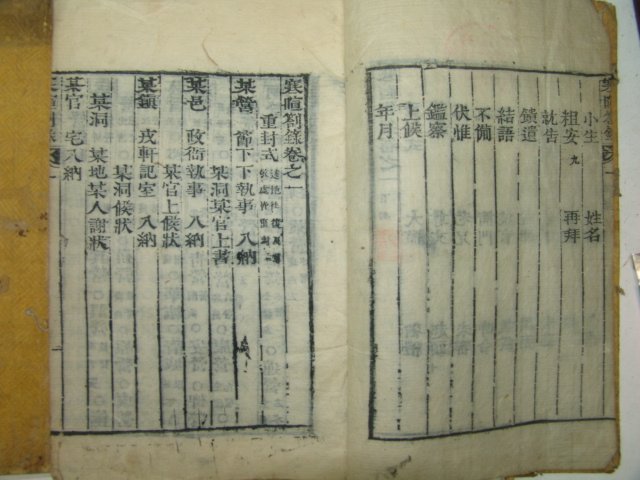 小生 姓名
祖安 九 再拜
就告
饋遺
結語
不備
伏惟
鑑察
上候
年月
寒暄劄錄卷之一
重封式
某營 節下下執事 入納
某洞某官上書
某邑 政衙執事 入納
某官上候狀
某鎭 戎軒記室 入納
某洞候狀
某洞 某地某人謝狀
某官 宅入納